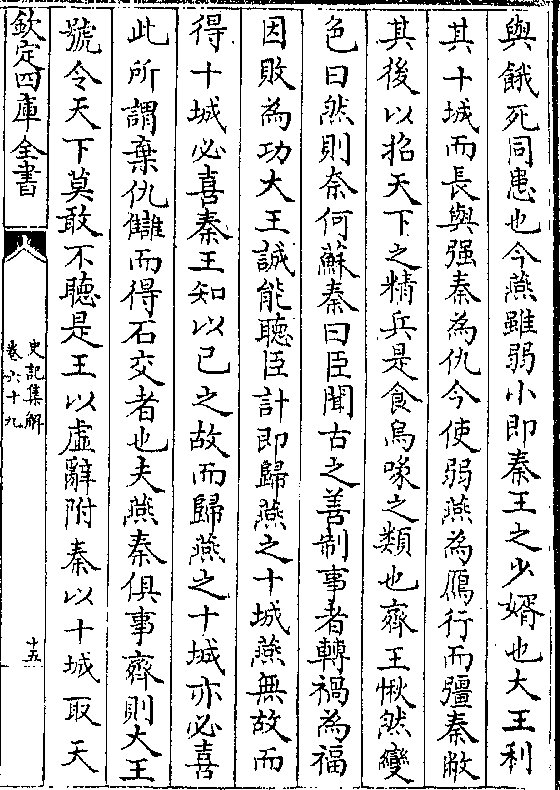 與餓死同患也今燕雖弱小即秦王之少婿也大王利
其十城而長與强秦為仇今使弱燕為鴈行而彊秦敝
其後以招天下之精兵是食烏喙之類也齊王愀然變
色曰然則奈何蘇秦曰臣聞古之善制事者轉禍為福
因敗為功大王誠能聽臣計即歸燕之十城燕無故而
得十城必喜秦王知以已之故而歸燕之十城亦必喜
此所謂棄仇讎而得石交者也夫燕秦俱事齊則大王
號令天下莫敢不聽是王以虛辭附秦以十城取天
欽定四庫全書
史記集解
卷六十九
十五